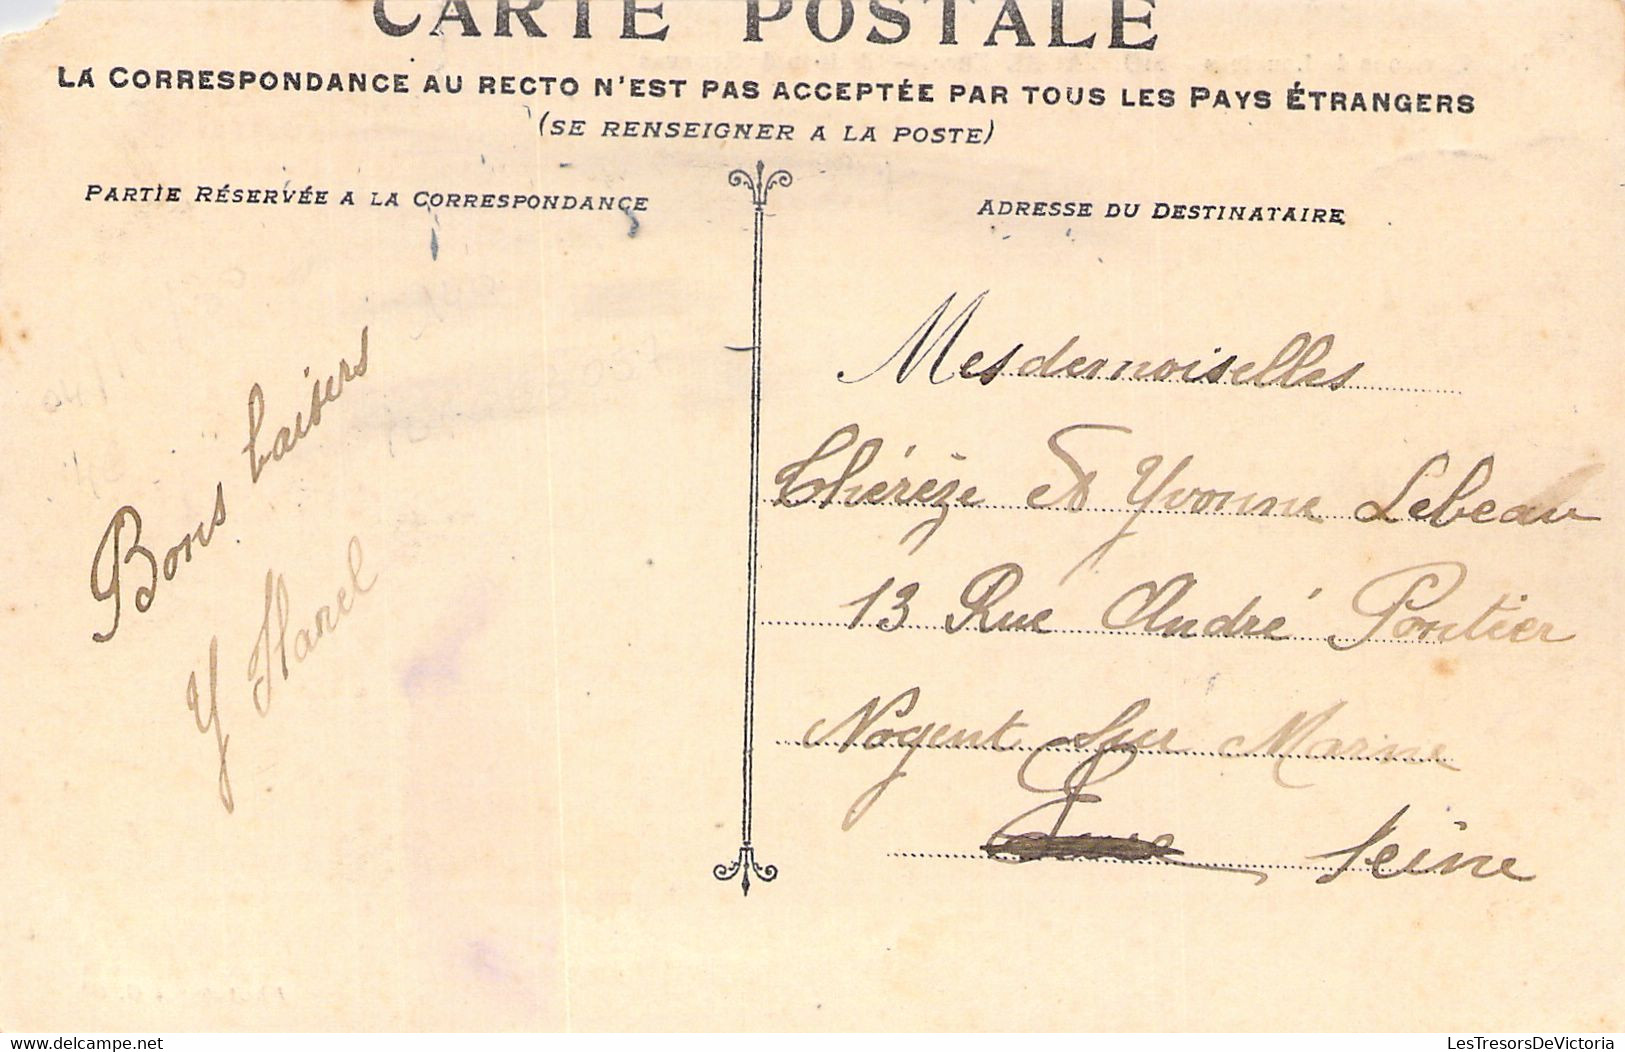 CARTE POSTALE
LA CORRESPONDANCE AU RECTO N'EST PAS ACCEPTÉE PAR TOUS LES PAYS ÉTRANGERS
(SE RENSEIGNER A LA POSTE)
PARTIE RÉSERVÉE A LA CORRESPONDANCE
ADRESSE DU DESTINATAIRE
Bons baisers
Y Harel
Mesdemoiselles
Thérèze et Yvonne Lebeau
13 Rue André Pontier
Nogent Sur Marne
Seine
delcampe.net
LesTresorsDeVictoria